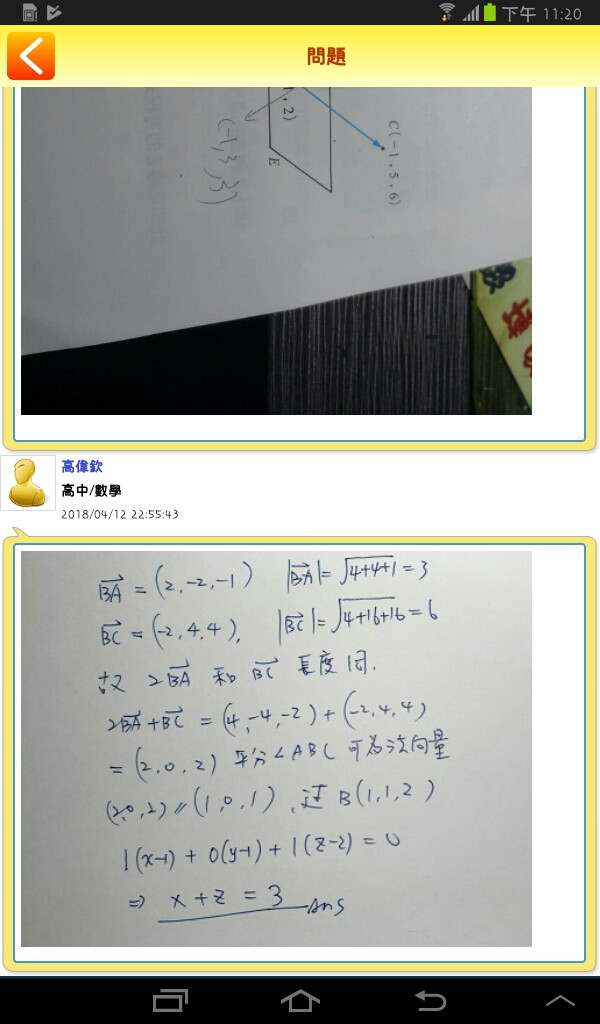 下午 11:20
問題
, 2)
C(-1, 5, 6)
E
(-1, 3, 3)
高偉欽
高中/數學
2018/04/12 22:55:43
BA = (2, -2, -1) |BA| = √4+4+1 = 3
BC = (-2, 4, 4), |BC| = √4+16+16 = 6
故 2BA 和 BC 長度同.
2BA + BC = (4, -4, -2) + (-2, 4, 4)
= (2, 0, 2) 平分∠ABC 可為法向量
(2, 0, 2) // (1, 0, 1), 過 B(1, 1, 2)
1(x-1) + 0(y-1) + 1(z-2) = 0
⇒ x + z = 3 Ans